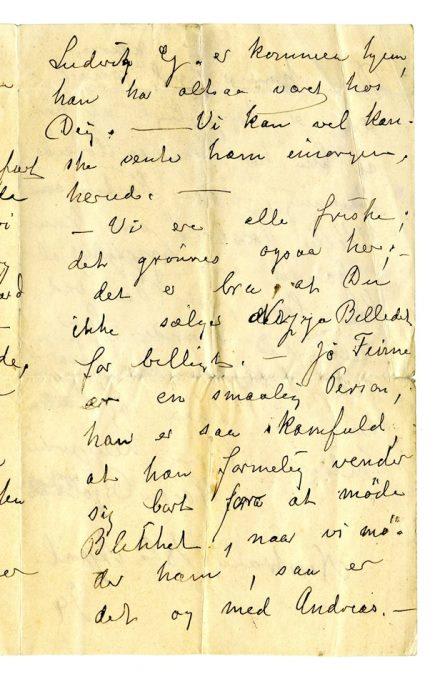 Ludvig G. er kommen hjem,
han har altsaa været hos
Dig. — Vi kan vel kan-
ske vente ham imorgen,
herude. —
— Vi ere alle friske;
det grønnes ogsaa her; –
det er bra at Du
ikke sælger Billedet
for billigt. — Jo Finne
er en smaalig Person,
han er saa skamfuld,
at han formelig vender
sig bort for at møde
Blikket, naar vi mø-
der ham, saa er
det og med Andreas. —